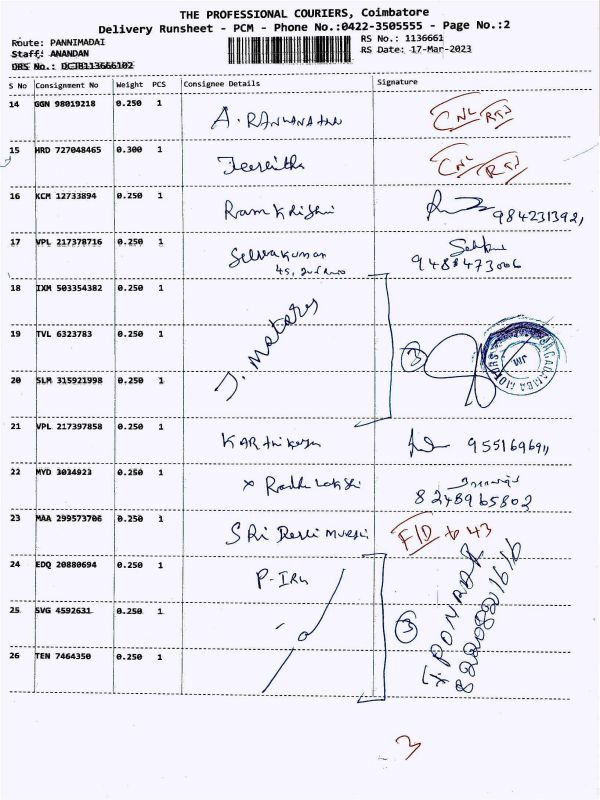 THE PROFESSIONAL COURIERS, Coimbatore
Delivery Runsheet - PCM - Phone No.:0422-3505555 - Page No.:2
Route: PANNIMADAI
RS No.: 1136661
Staff: ANANDAN
RS Date: 17-Mar-2023
DRS No.: DCJB113666102
S No Consignment No Weight PCS Consignee Details Signature
14 GGN 98019218 0.250 1
CNL
15 HRD 727048465 0.300 1
CNL
16 KCM 12733894 0.250 1 Ram Krishn
17 VPL 217378716 0.250 1 Selvakumar
9488473006
18 IXM 503354382 0.250 1
J. Motors
19 TVL 6323783 0.250 1 3
JAGADAMBA MOTORS
JM
20 SLM 315921998 0.250 1
21 VPL 217397858 0.250 1 KARthikeyan
22 MYD 3034923 0.250 1
8248965802
23 MAA 299573706 0.250 1 F/D to 43
24 EDQ 20880694 0.250 1
25 SVG 4592631 0.250 1 3
26 TEN 7464350 0.250 1
3